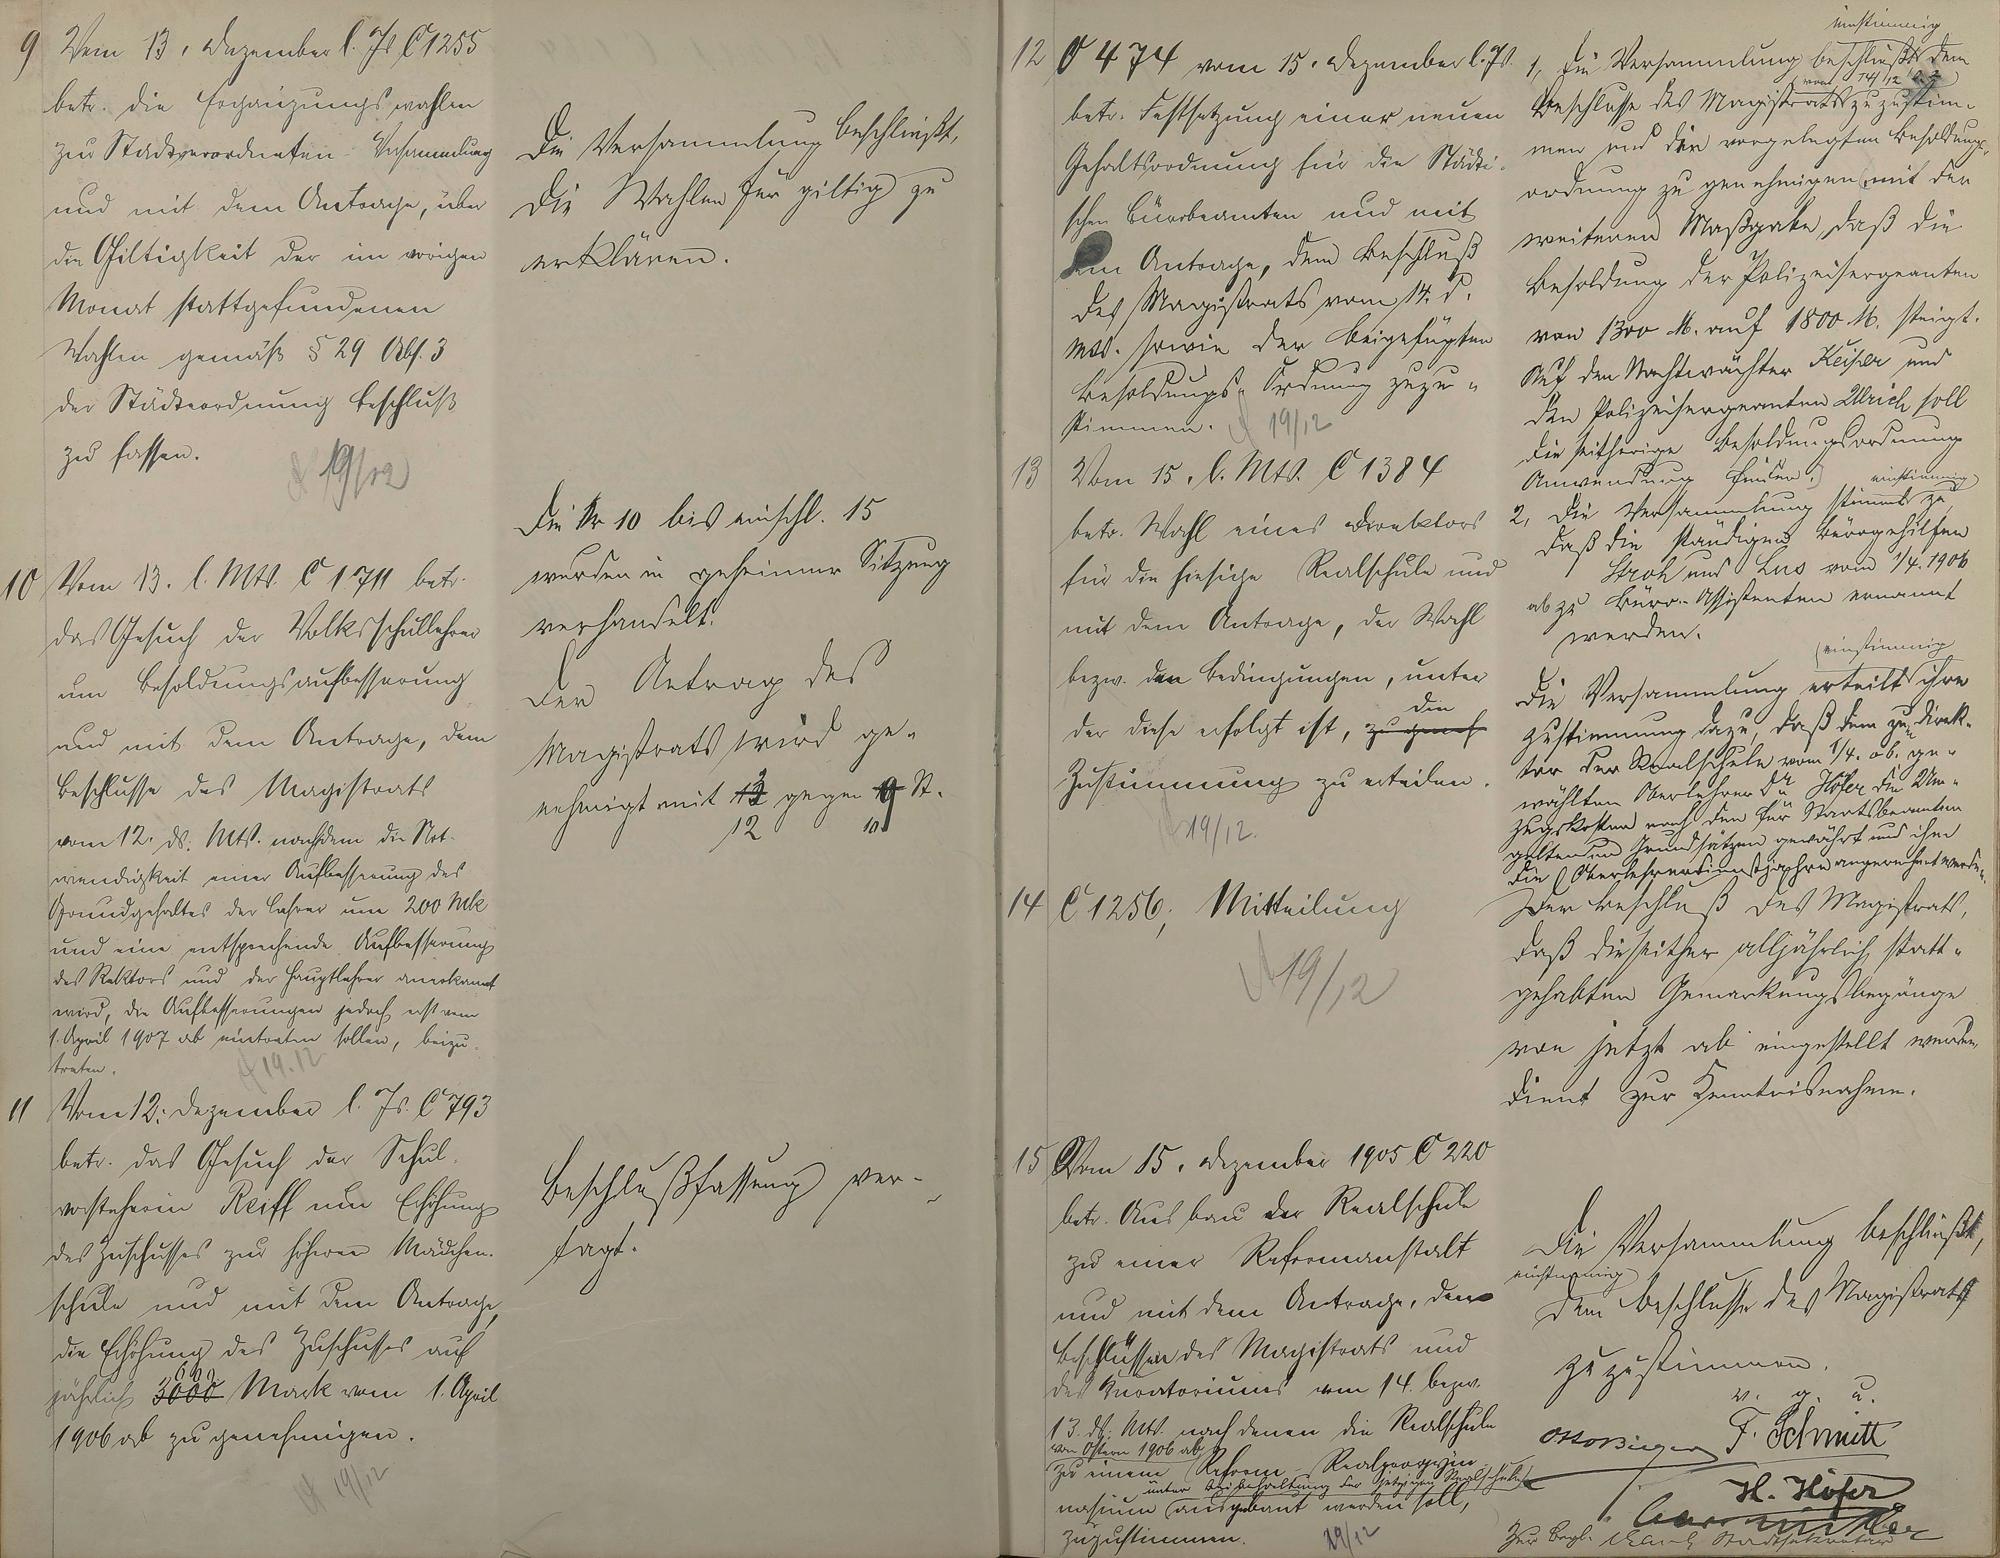 9 Vom 13. Dezember l. Js. C 1255
betr. die Ergänzungswahlen
zur Stadtverordneten-Versammlung
und mit dem Antrage, über
die Giltigkeit der im vorigen
Monat stattgefundenen
Wahlen gemäß § 29 Abs. 3
der Städteordnung Beschluß
zu fassen.
19/12
Die Versammlung beschließt,
die Wahlen für giltig zu
erklären.
10 Vom 13. l. Mts. C 1711 betr.
das Gesuch der Volksschullehrer
um Besoldungsaufbesserung
und mit dem Antrage, dem
Beschlusse des Magistrats
vom 12. ds. Mts. nachdem die Not-
wendigkeit einer Aufbesserung des
Grundgehaltes der Lehrer um 200 Mk
und eine entsprechende Aufbesserung
des Rektors und der Hauptlehrer anerkannt
wird, die Aufbesserungen jedoch erst vom
1. April 1907 ab eintreten sollen, beizu-
treten.
19.12
Die Nr 10 bis einschl. 15
wurden in geheimer Sitzung
verhandelt.
Der Antrag des
Magistrats wird ge-
nehmigt mit gegen St.
12 10
11 Vom 12. Dezember l. Js. C 793
betr. das Gesuch der Schul-
vorsteherin Reiff um Erhöhung
des Zuschusses zur höheren Mädchen-
schule und mit dem Antrage,
die Erhöhung des Zuschusses auf
600
jährlich 3000 Mark vom 1. April
1906 ab zu genehmigen.
19/12
Beschlußfassung ver-
tagt.
12 C 474 vom 15. Dezember l. Js.
betr. Festsetzung einer neuen
Gehaltsordnung für die Städti-
schen Bürobeamten und mit
dem Antrage, dem Beschluß
des Magistrats vom 14. d.
Mts. sowie der beigefügten
Besoldungs-Ordnung zuzu-
stimmen.
19/12
einstimmig
1, Die Versammlung beschließt dem
vom 14/12
Beschlusse des Magistrats zuzustim-
men und die vorgelegten Besoldungs-
ordnung zu genehmigen mit der
weiteren Maßgabe, daß die
Besoldung der Polizeisergeanten
von 1300 M. auf 1800 M. steigt.
Auf den Nachtwächter Keiser und
den Polizeisergeanten Ulrich soll
die seitherige Besoldungsordnung
Anwendung finden.
einstimmig
2, Die Versammlung stimmt zu,
daß die ständigen Bürogehilfen
Stroh und Lus vom 1/4. 1906
ab zu Büro-Assistenten ernannt
werden.
13 Vom 15. l. Mts. C 1384
betr. Wahl eines Direktors
für die hiesige Realschule und
mit dem Antrage, der Wahl
bezw. den Bedingungen, unter
der diese erfolgt ist, zu geneh die
Zustimmung zu erteilen.
19/12.
einstimmig
Die Versammlung erteilt ihre
Zustimmung dazu, daß dem zum Direk-
tor der Realschule vom 1/4. 06. ge-
wählten Oberlehrer Dr. Höfer die Um-
zugskosten nach den für Staatsbeamten
geltenden Grundsätzen gewährt und ihm
die Oberlehrerdienstjahre angerechnet werden.
14 C 1256; Mitteilung
19/12
Der Beschluß des Magistrats,
daß die seither alljährlich statt-
gehabten Gemarkungsbegänge
von jetzt ab eingestellt werden,
dient zur Kenntnisnahme.
15 Vom 15. Dezember 1905 C 220
betr. Ausbau der Realschule
zu einer Reformanstalt
und mit dem Antrage, den
Beschlüssen des Magistrats und
des Kuratoriums vom 14. bezw.
13. ds. Mts. nach denen die Realschule
von Ostern 1906 ab
zu einem Reform-Realprogym-
unter Beibehaltung der jetzigen Realschule
nasium ausgebaut werden soll,
zuzustimmen.
19/12
Die Versammlung beschließt,
einstimmig
dem Beschlusse des Magistrats
zuzustimmen.
v. g. u.
F. Schmitt
H. Höfer
Zur Begl. Stadtsekretär